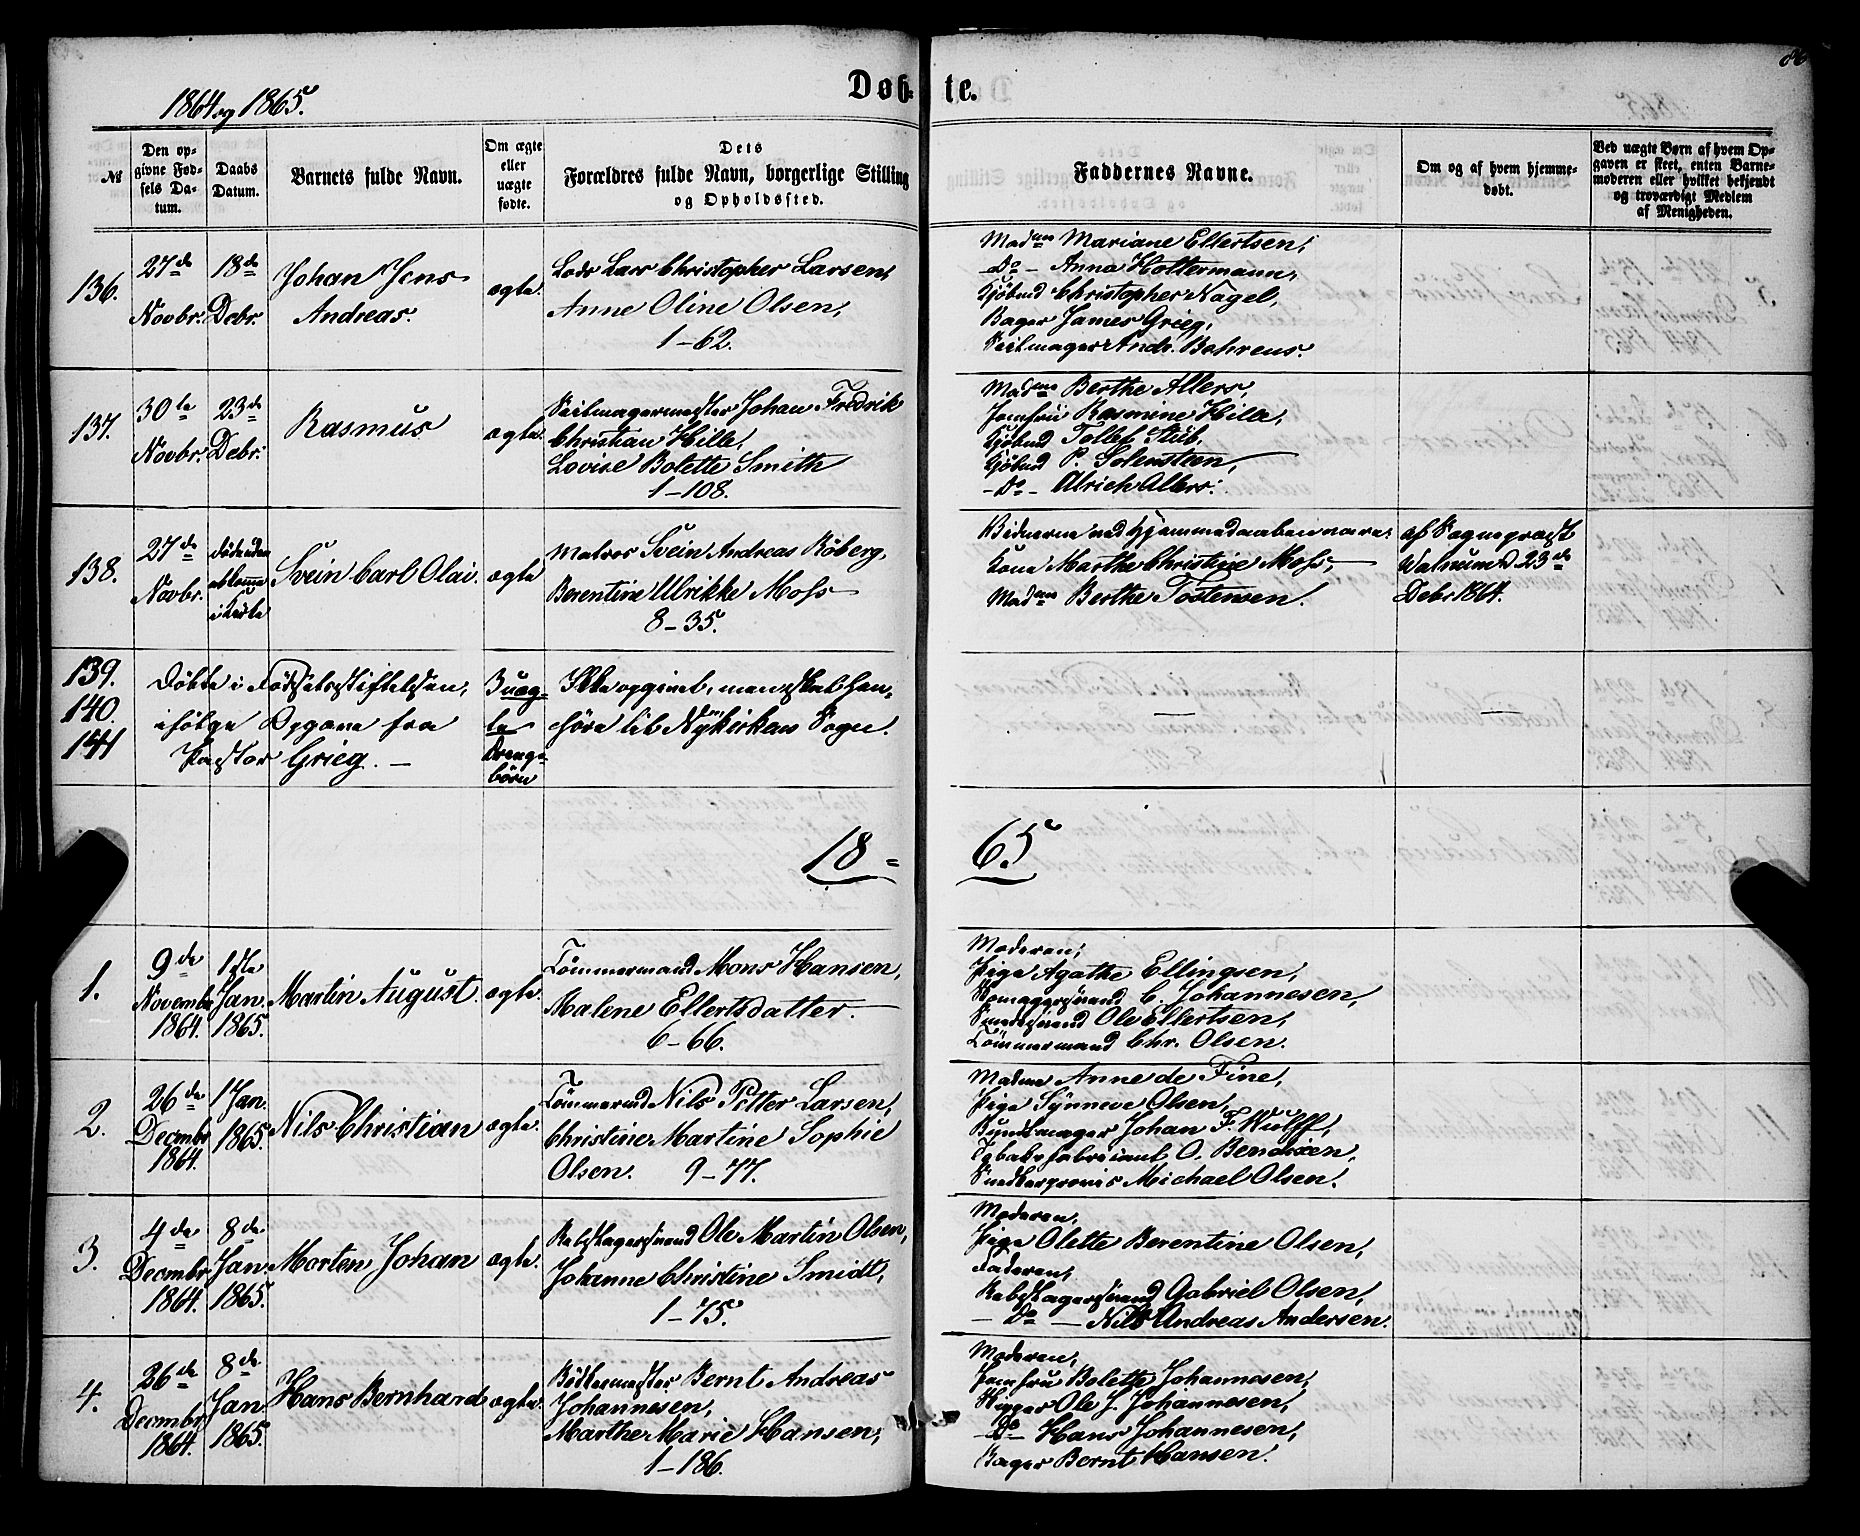 86
Døb= te.
1864 og 1865.
№
Den op-
givne Fød-
sels Da-
tum.
Daabs
Datum.
Barnets fulde Navn.
Om ægte
eller
uægte
fødte.
Dets
Forældres fulde Navn, borgerlige Stilling
og Opholdssted.
Faddernes Navne.
Om og af hvem hjemme-
døbt.
Ved uægte Børn af hvem Op-
gaven er skeet, enten Barne-
moderen eller hvilket bekjendt
og troværdigt Medlem
af Menigheden.
136.
27de
Novbr.
18de
Debr.
Johan Jens
Andreas.
ægte.
Lods Lars Christopher Larsen,
Anne Oline Olsen,
1-62.
Madme Mariane Ellertsen,
Do - Anna Holtermann,
Kjøbmd Christopher Nagel,
Bager James Grieg,
Seilmager Andr. Behrens.
137.
30te
Novbr.
23de
Debr.
Rasmus
ægte.
Seilmagermester Johan Fredrik
Christian Hille,
Lovise Bolette Smith
1-108.
Madme Berthe Allers,
Jomfrü Rasmine Hille,
Kjøbmd Tollef Stüb,
Kjøbmd P. Solensteen,
-Do- Ulrich Allers.
138.
27de
Novbr.
død inden
ankomst
i Kirke
Svein Carl Olai.
ægte
Matros Svein Andreas Röberg,
Berentine Ulrikke Moss
8-35.
Vidnerne ved hjemmedaaben vare:
Kone Marthe Christine Moss,
Madme Berthe Tostensen.
af Sognepræst
Walnum d. 23de
Debr 1864.
139.
140.
141
Døbte i Födselsstiftelsen,
ifölge Opgave fra
Pastor Grieg. -
3 uæg-
te
Drenge-
börn
Ikke opgivet, men skal hen-
höre til Nykirkens Sogn.
-
-
18 = 65
1.
9de
Novembr
1864.
1ste
Jan.
1865.
Martin August
ægte.
Tömmermand Mons Hansen,
Malene Ellertsdatter.
6-66.
Moderen,
Pige Agathe Ellingsen,
Skomagersvend C. Johannesen,
Smedesvend Ole Ellertsen,
Tömmermand Chr. Olsen.
2.
26de
Decmbr
1864.
1 Jan.
1865.
Nils Christian
ægte.
Tömmermd Nils Petter Larsen,
Christine Martine Sophie
Olsen. 9-77.
Madme Anne de Fine,
Pige Synneve Olsen,
Bundtmager Johan F. Wulff,
Tobaksfabrikant O. Bendixen,
Snedkersvend Michael Olsen.
3.
4de
Decmbr
1864.
8de
Jan.
1865.
Morten Johan
ægte.
Rebslagersvend Ole Martin Olsen,
Johanne Christine Smidt,
1-75.
Moderen,
Pige Olette Berentine Olsen,
Faderen,
Rebslagersvend Gabriel Olsen,
- Do - Nils Andreas Andersen.
4.
26de
Decmbr
1864.
8de
Jan.
1865.
Hans Bernhard
ægte.
Bödkermester Bernt Andreas
Johannesen,
Marthe Marie Hansen,
1-186.
Moderen,
Jomfru Bolette Johannesen,
Skipper Ole J. Johannesen,
-Do- Hans Johannesen,
Bager Bernt Hansen.